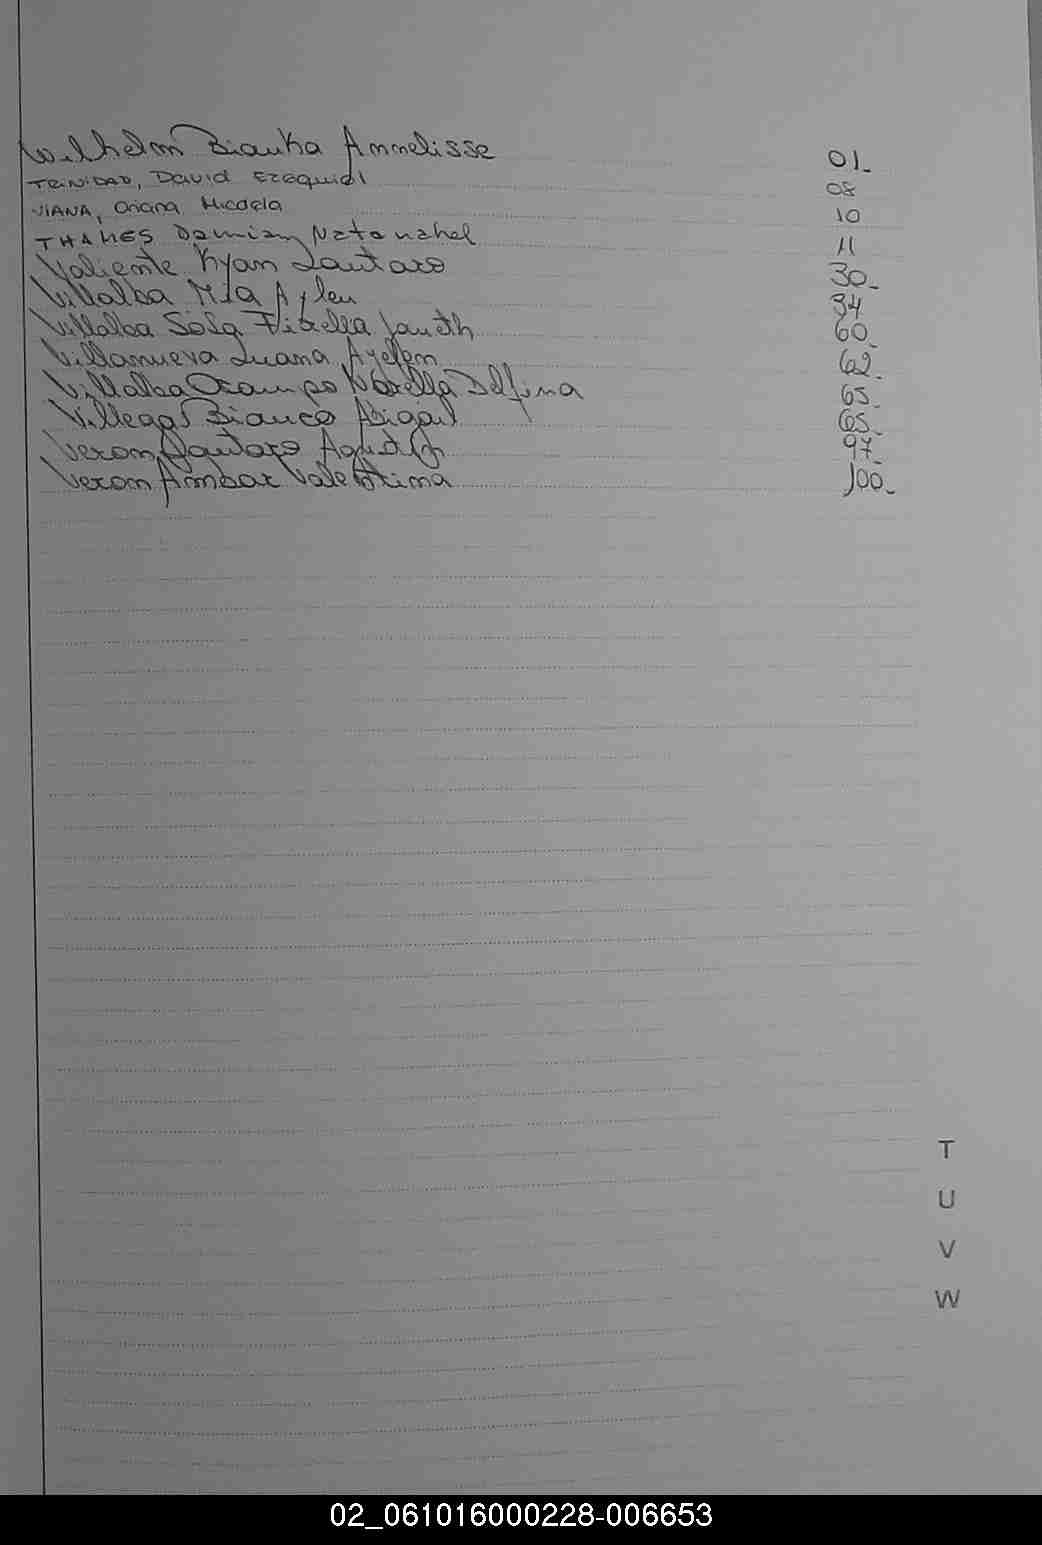 Wilhelm Bianka Annelisse 01_
TRINIDAD, David Ezequiel 08
VIANA, Oriana Micaela 10
THAMES Damian Natanahel 11
Valiente Kyan Lautaro 30_
Villalba Mia Aylen 34
Villalba Sosa Fiorella Janeth 60_
Villanueva Luana Ayelen 62_
Villalba Ocampo Morella Delfina 65_
Villegas Bianca Abigail 65_
Veron Lautaro Agustin 97_
Veron Ambar Valentina 100_
T
U
V
W
02_061016000228-006653